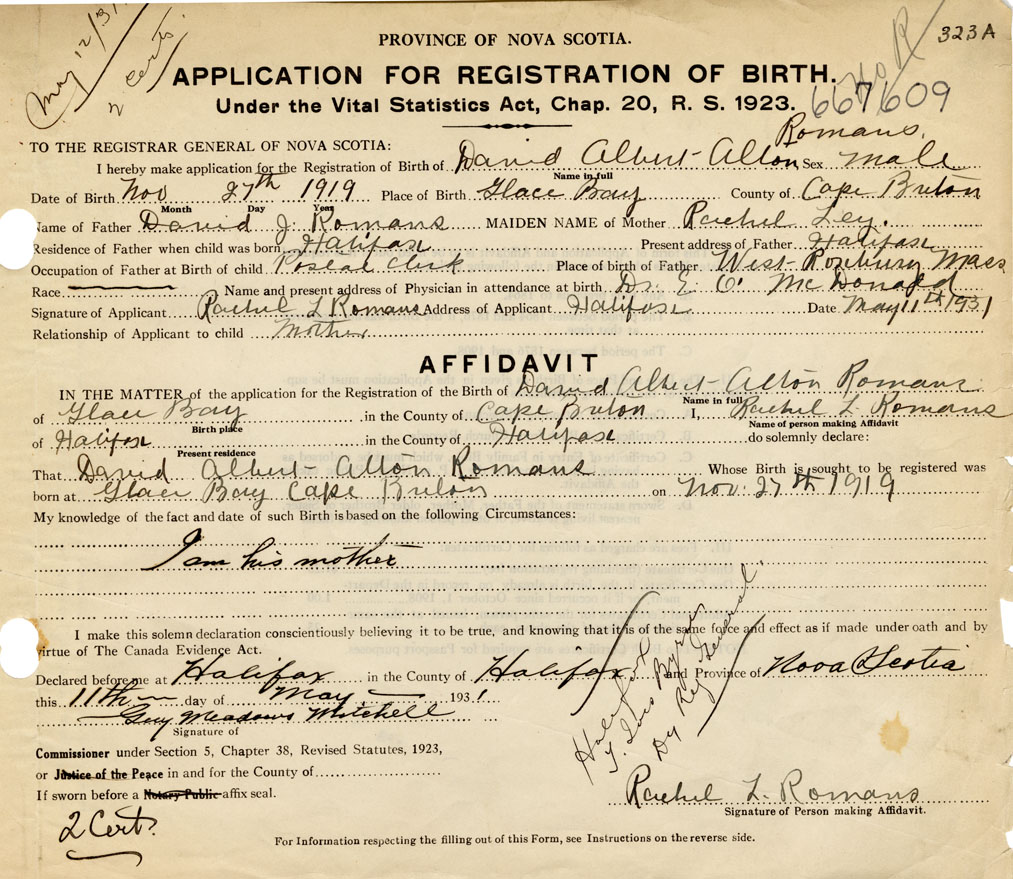 May 12/31
2 certs.
323 A
PROVINCE OF NOVA SCOTIA.
APPLICATION FOR REGISTRATION OF BIRTH.
Under the Vital Statistics Act, Chap. 20, R. S. 1923.
667609
TO THE REGISTRAR GENERAL OF NOVA SCOTIA:
I hereby make application for the Registration of Birth of David Albert-Alton Romans. Sex Male
Name in full
Date of Birth Nov 27th 1919 Place of Birth Glace Bay County of Cape Breton
Month Day Year
Name of Father David J. Romans MAIDEN NAME of Mother Rachel Ley.
Residence of Father when child was born Halifax Present address of Father Halifax
Occupation of Father at Birth of child Postal Clerk Place of birth of Father West-Roxbury Mass
Race Name and present address of Physician in attendance at birth Dr. E. O. McDonald
Signature of Applicant Rachel L Romans Address of Applicant Halifax Date May 11th 1931
Relationship of Applicant to child Mother
AFFIDAVIT
IN THE MATTER of the application for the Registration of the Birth of David Albert-Alton Romans
Name in full
of Glace Bay in the County of Cape Breton I, Rachel L. Romans
Birth place Name of person making Affidavit
of Halifax in the County of Halifax do solemnly declare:
Present residence
That David Albert-Alton Romans Whose Birth is sought to be registered was
born at Glace Bay Cape Breton on Nov. 27th 1919
My knowledge of the fact and date of such Birth is based on the following Circumstances:
I am his mother
I make this solemn declaration conscientiously believing it to be true, and knowing that it is of the same force and effect as if made under oath and by
virtue of The Canada Evidence Act.
Declared before me at Halifax in the County of Halifax and Province of Nova Scotia
this 11th day of May 1931
Guy Meadows Mitchell
Signature of
Commissioner under Section 5, Chapter 38, Revised Statutes, 1923,
or Justice of the Peace in and for the County of
If sworn before a Notary Public affix seal.
Dy Reg General.
Rachel L. Romans
Signature of Person making Affidavit.
2 Certs.
For Information respecting the filling out of this Form, see Instructions on the reverse side.